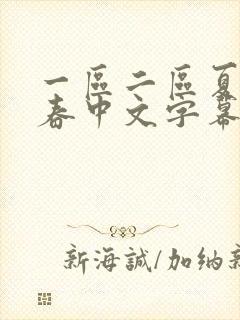 一區二區夏
春中文字幕
新海誠/加纳新